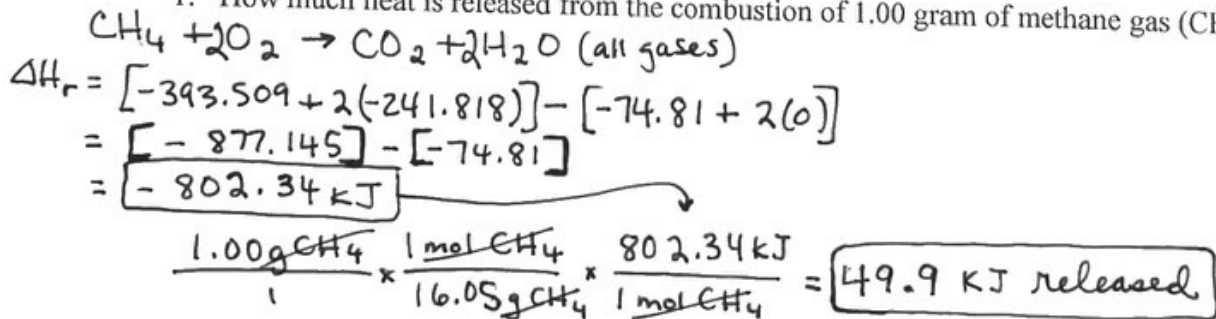 How much heat is released from the combustion of 1.00 gram of methane gas
CH₄ + 2O₂ → CO₂ + 2H₂O (all gases)
ΔHᵣ = [-393.509 + 2(-241.818)] - [-74.81 + 2(0)]
= [- 877.145] - [-74.81]
= - 802.34 kJ
1.00g CH₄ / 1 × 1 mol CH₄ / 16.05g CH₄ × 802.34 kJ / 1 mol CH₄ = 49.9 KJ released